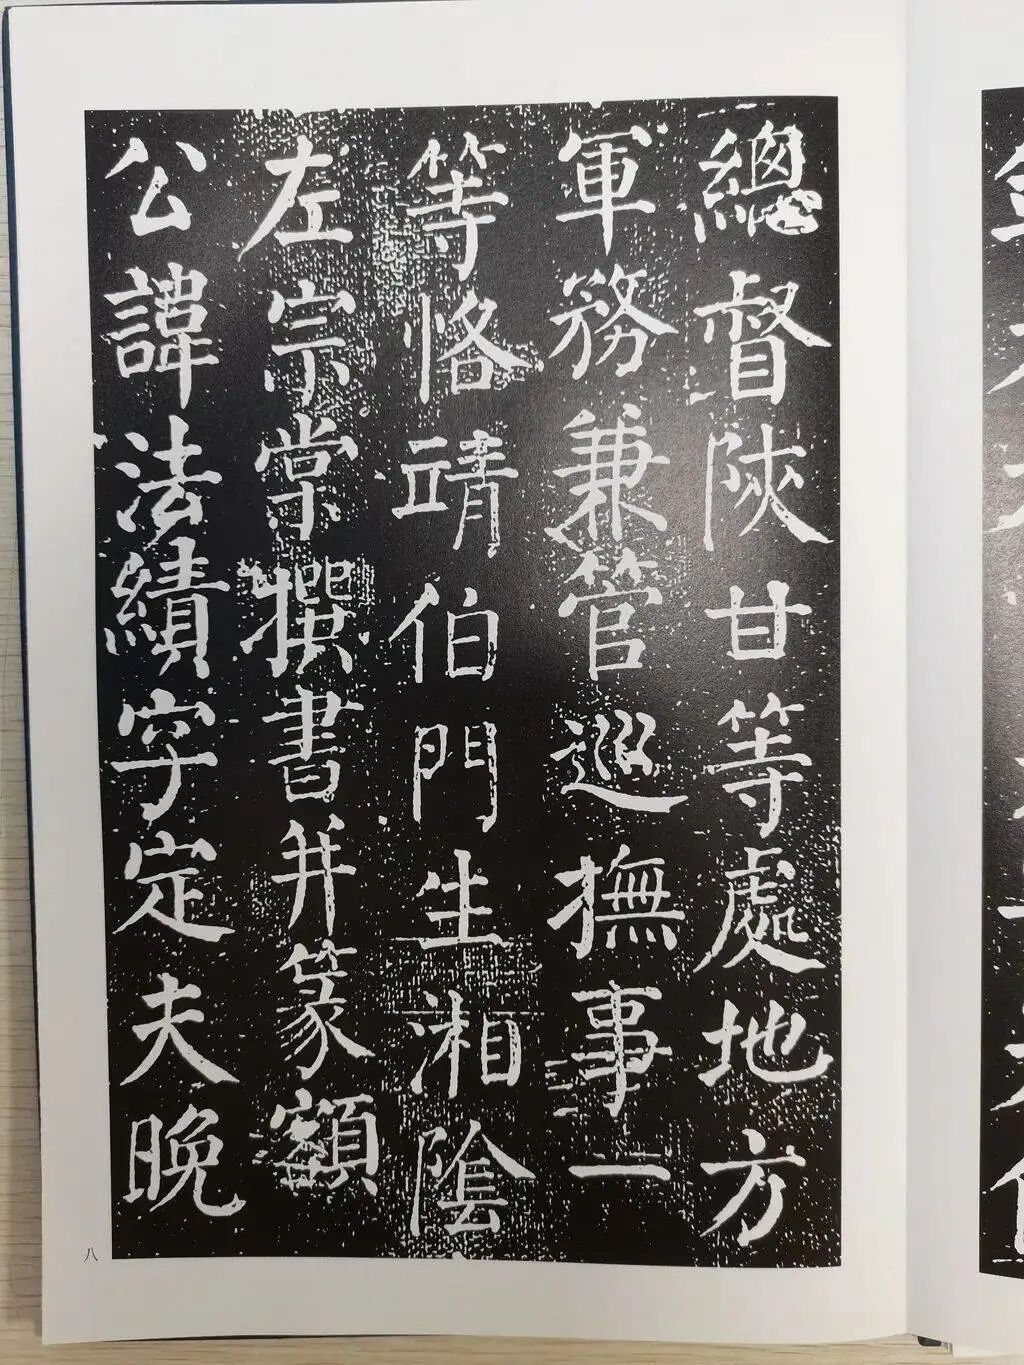 總督陝甘等處地方
軍務兼管巡撫事一
等恪靖伯門生湘陰
左宗棠撰書并篆額
公諱法績字定夫晚
八